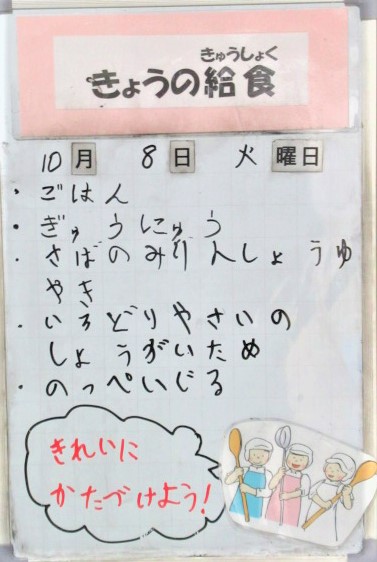 きゅうしょく
きょうの給食
10月 8日 火曜日
・ごはん
・ぎゅうにゅう
・さばのみりんしょうゆ
やき
・いろどりやさいの
しょうがいため
・のっぺいじる
きれいに
かたづけよう!